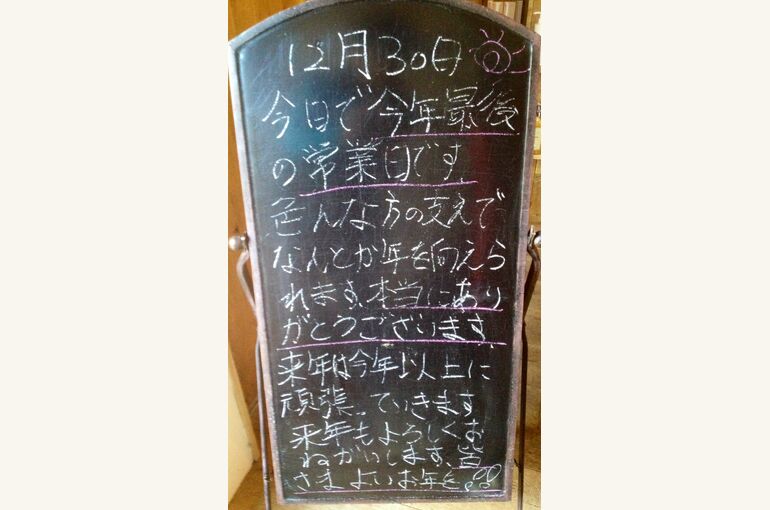 12月30日
今日で今年最後
の常業日です
色んな方の支えで
なんとか年を向えら
れます、本当にあり
がとうございます、
来年は今年以上に
頑張っていきます
来年もよろしくお
ねがいします、皆
さまよいお年を!!